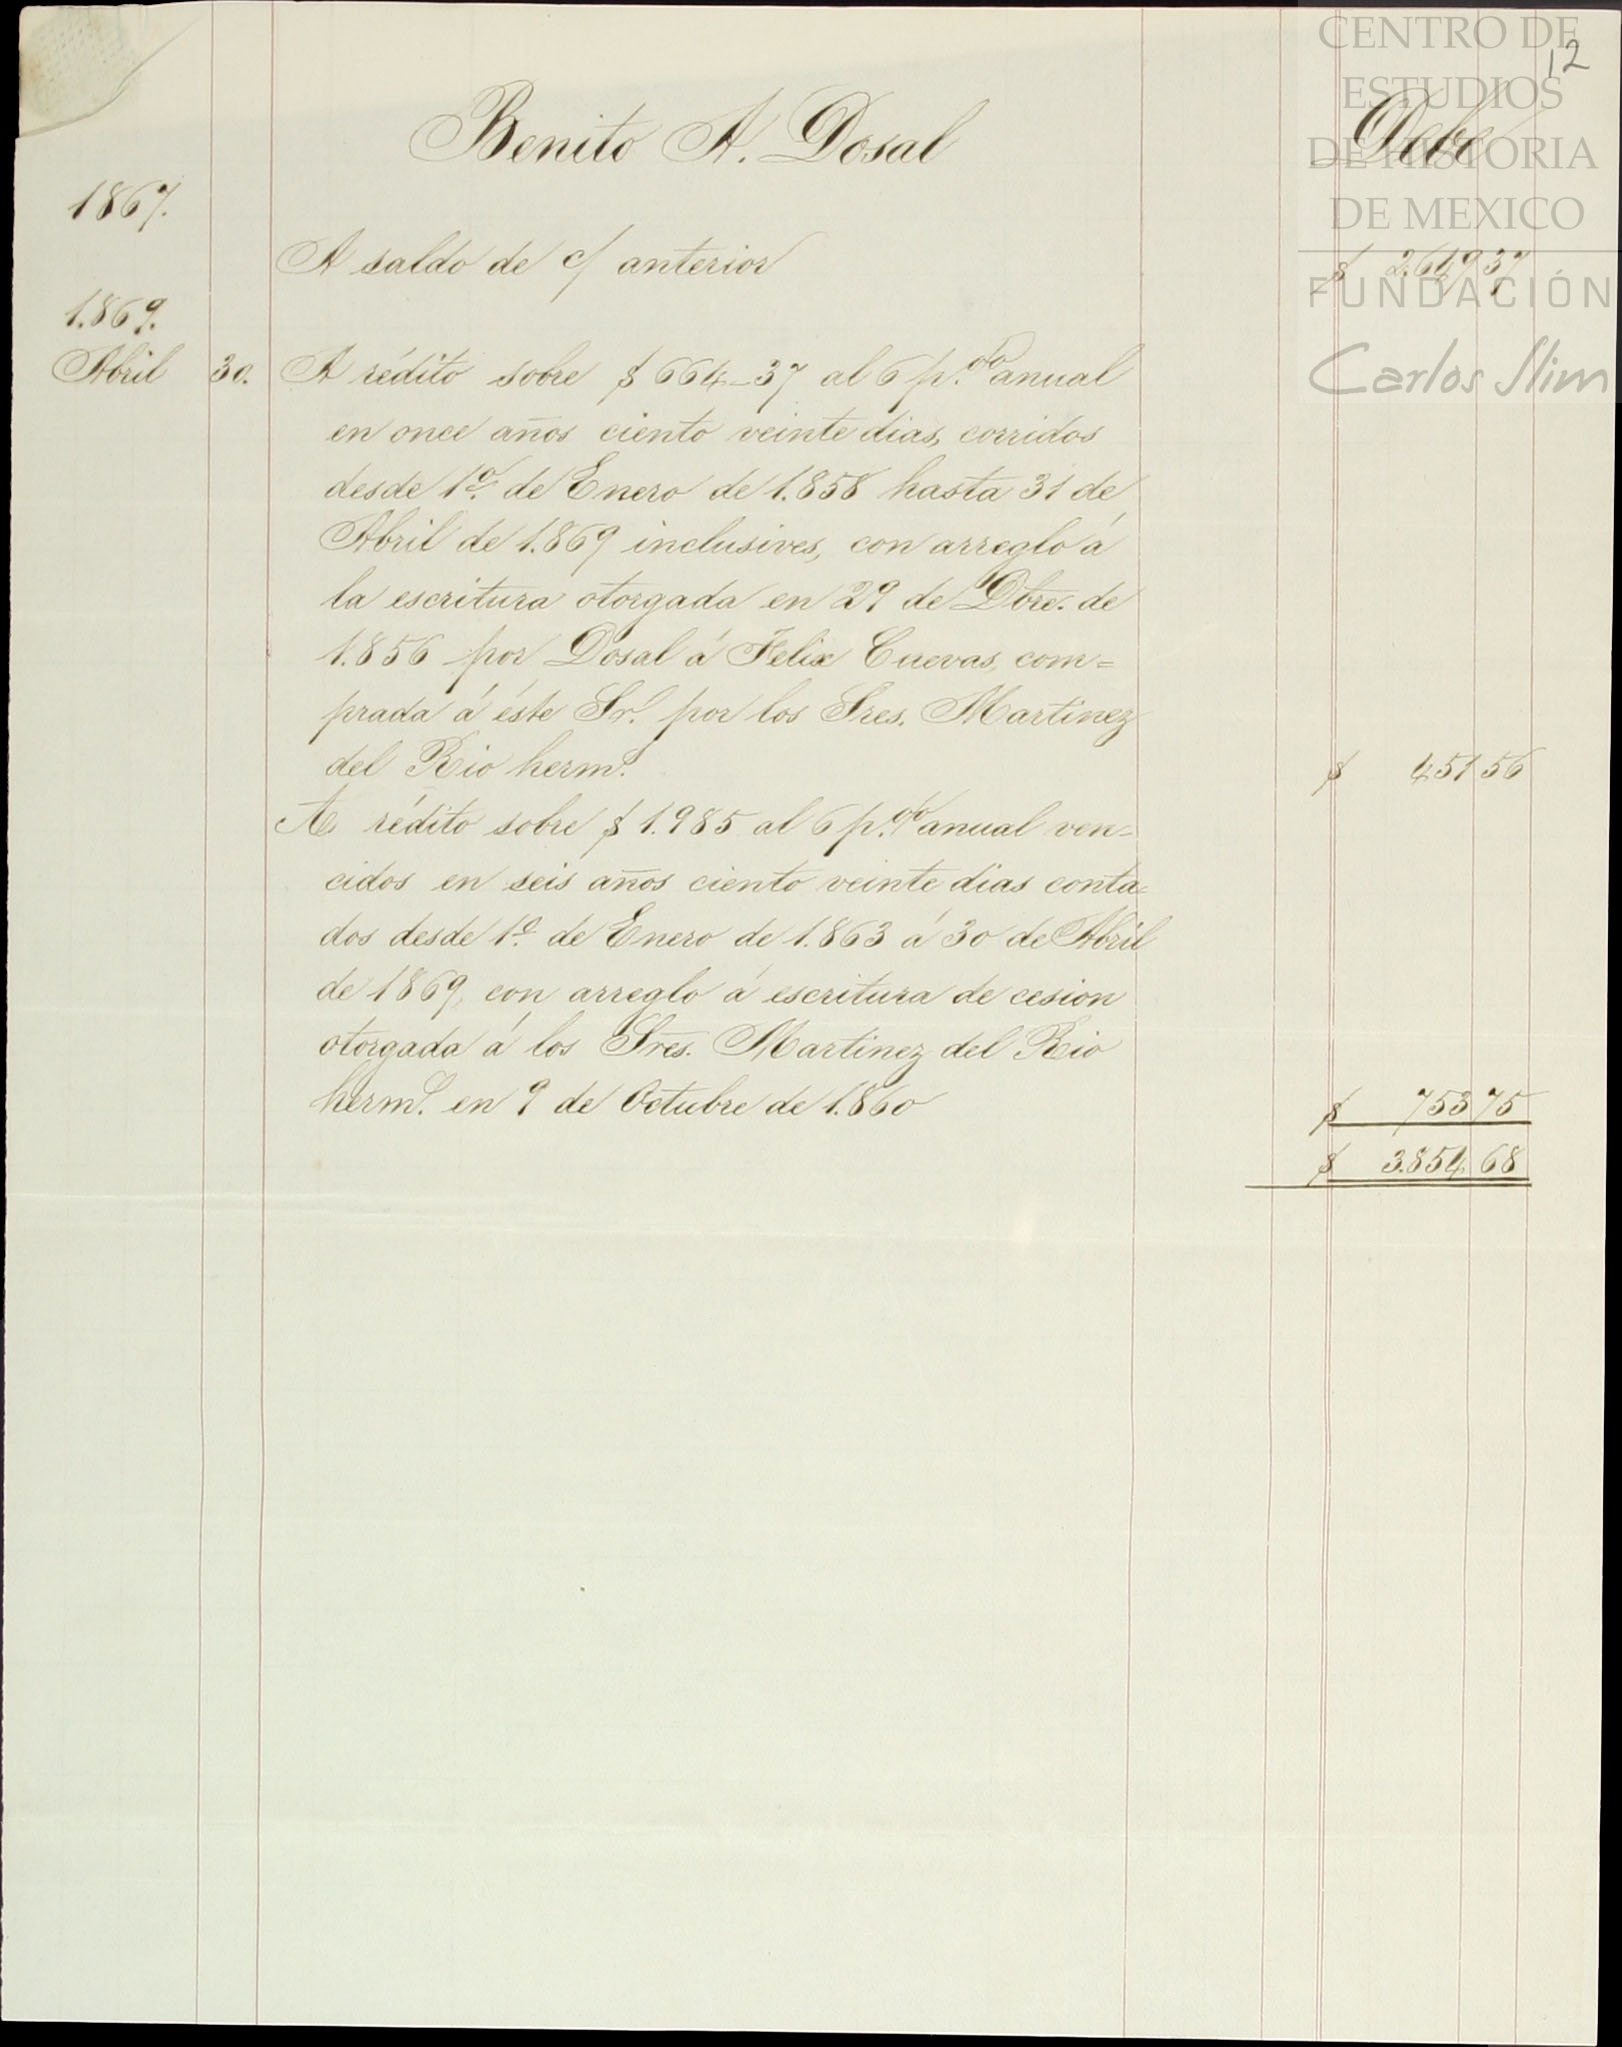 CENTRO DE
ESTUDIOS
DE HISTORIA
DE MEXICO
FUNDACIÓN
Carlos Slim
12
Benito A. Dosal Debe
1867.
A saldo de c/ anterior $ 2.649 37
1.869.
Abril 30. A rédito sobre $ 664_37 al 6 p.% anual
en once años ciento veinte dias, corridos
desde 1º. de Enero de 1.858 hasta 31 de
Abril de 1.869 inclusives, con arreglo á
la escritura otorgada en 29 de Dbre. de
1.856 por Dosal á Felix Cuevas, com=
prada á éste Sr. por los Sres. Martinez
del Rio hermˢ. $ 451 56
A rédito sobre $ 1.985 al 6 p.% anual ven-
cidos en seis años ciento veinte dias conta=
dos desde 1º. de Enero de 1.863 á 30 de Abril
de 1869, con arreglo á escritura de cesion
otorgada á los Sres. Martinez del Rio
hermˢ. en 9 de Octubre de 1.860 $ 753 75
$ 3.854 68